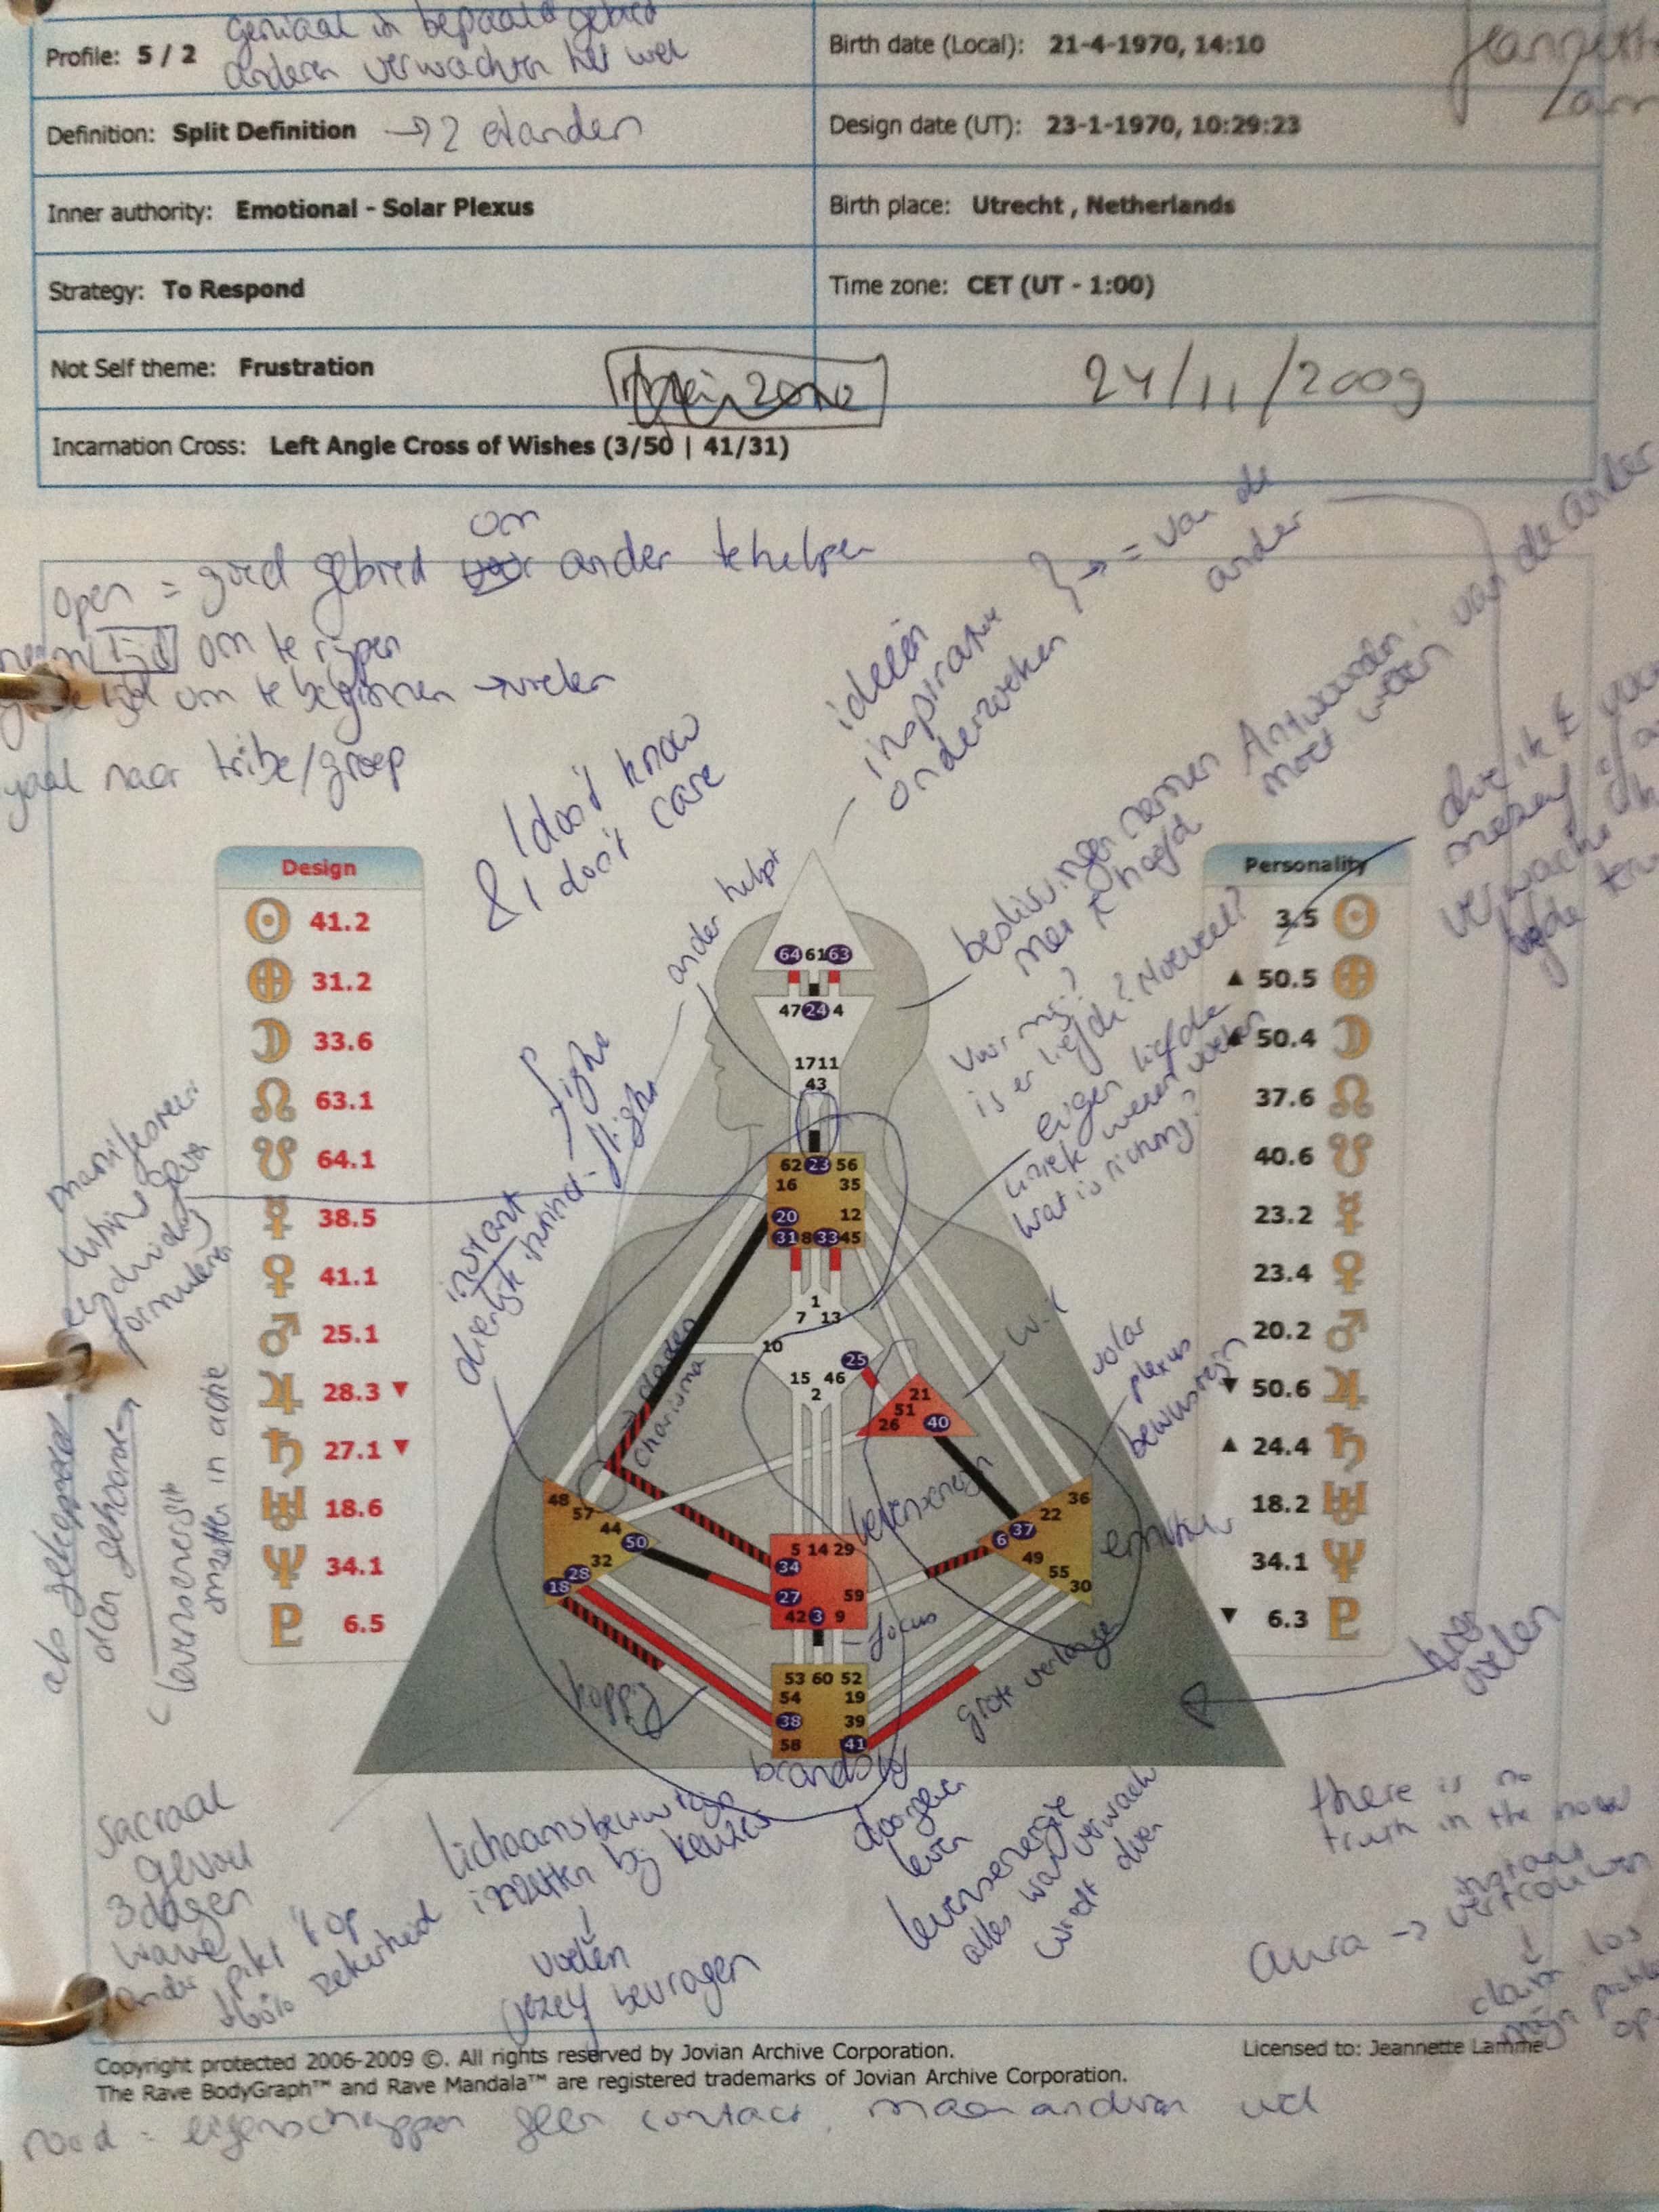 geniaal in bepaald gebied
anderen verwachten het wel
Profile: 5 / 2
Birth date (Local): 21-4-1970, 14:10
Definition: Split Definition → 2 eilanden
Design date (UT): 23-1-1970, 10:29:23
Inner authority: Emotional - Solar Plexus
Birth place: Utrecht , Netherlands
Strategy: To Respond
Time zone: CET (UT - 1:00)
Not Self theme: Frustration
24/11/2009
Incarnation Cross: Left Angle Cross of Wishes (3/50 | 41/31)
om
open = goed gebied voor ander te helpen
neem tijd om te rijpen
tijd om te beginnen → voelen
gaat naar tribe/groep
} → = van de
ander
ideeën
inspiratie
onderzoeken
I don't know
& I don't care
ander helpt
beslissingen nemen Antwoorden van de ander
met t hoofd moet weten
voor mij?
is er liefde? Hoeveel?
eigen liefde
uniek wezen
wat is richting?
Design
41.2
31.2
33.6
63.1
64.1
38.5
41.1
25.1
28.3 ▼
27.1 ▼
18.6
34.1
6.5
Personality
3.5
▲ 50.5
▲ 50.4
37.6
40.6
23.2
23.4
20.2
▼ 50.6
▲ 24.4
18.2
34.1
▼ 6.3
64 61 63
47 24 4
17 11
43
62 23 56
16 35
20 12
31 8 33 45
1
7 13
10
25
15 46
2
21
51
26 40
48
57
44
50
32
28
18
36
22
37
6
49
55
30
5 14 29
34
27 59
42 3 9
53 60 52
54 19
38 39
58 41
fight
flight
instant
manifesteren
formuleren
daden
charisma
solar
plexus
bewustzijn
levensenergie
focus
koppig
grote verlange
brandstof
levensenergie
omzetten in actie
sacraal
gevoel
3 dagen
wave
ander pikt t op
lichaamsbewustzijn
inzetten bij keuzes
↓
voelen
jezelf bevragen
levensenergie
there is no
truth in the now
aura → instant
vertrouwen
↓
Copyright protected 2006-2009 ©. All rights reserved by Jovian Archive Corporation.
Licensed to: Jeannette Lamme
The Rave BodyGraph™ and Rave Mandala™ are registered trademarks of Jovian Archive Corporation.
rood = eigenschappen geen contact, maar anderen wel